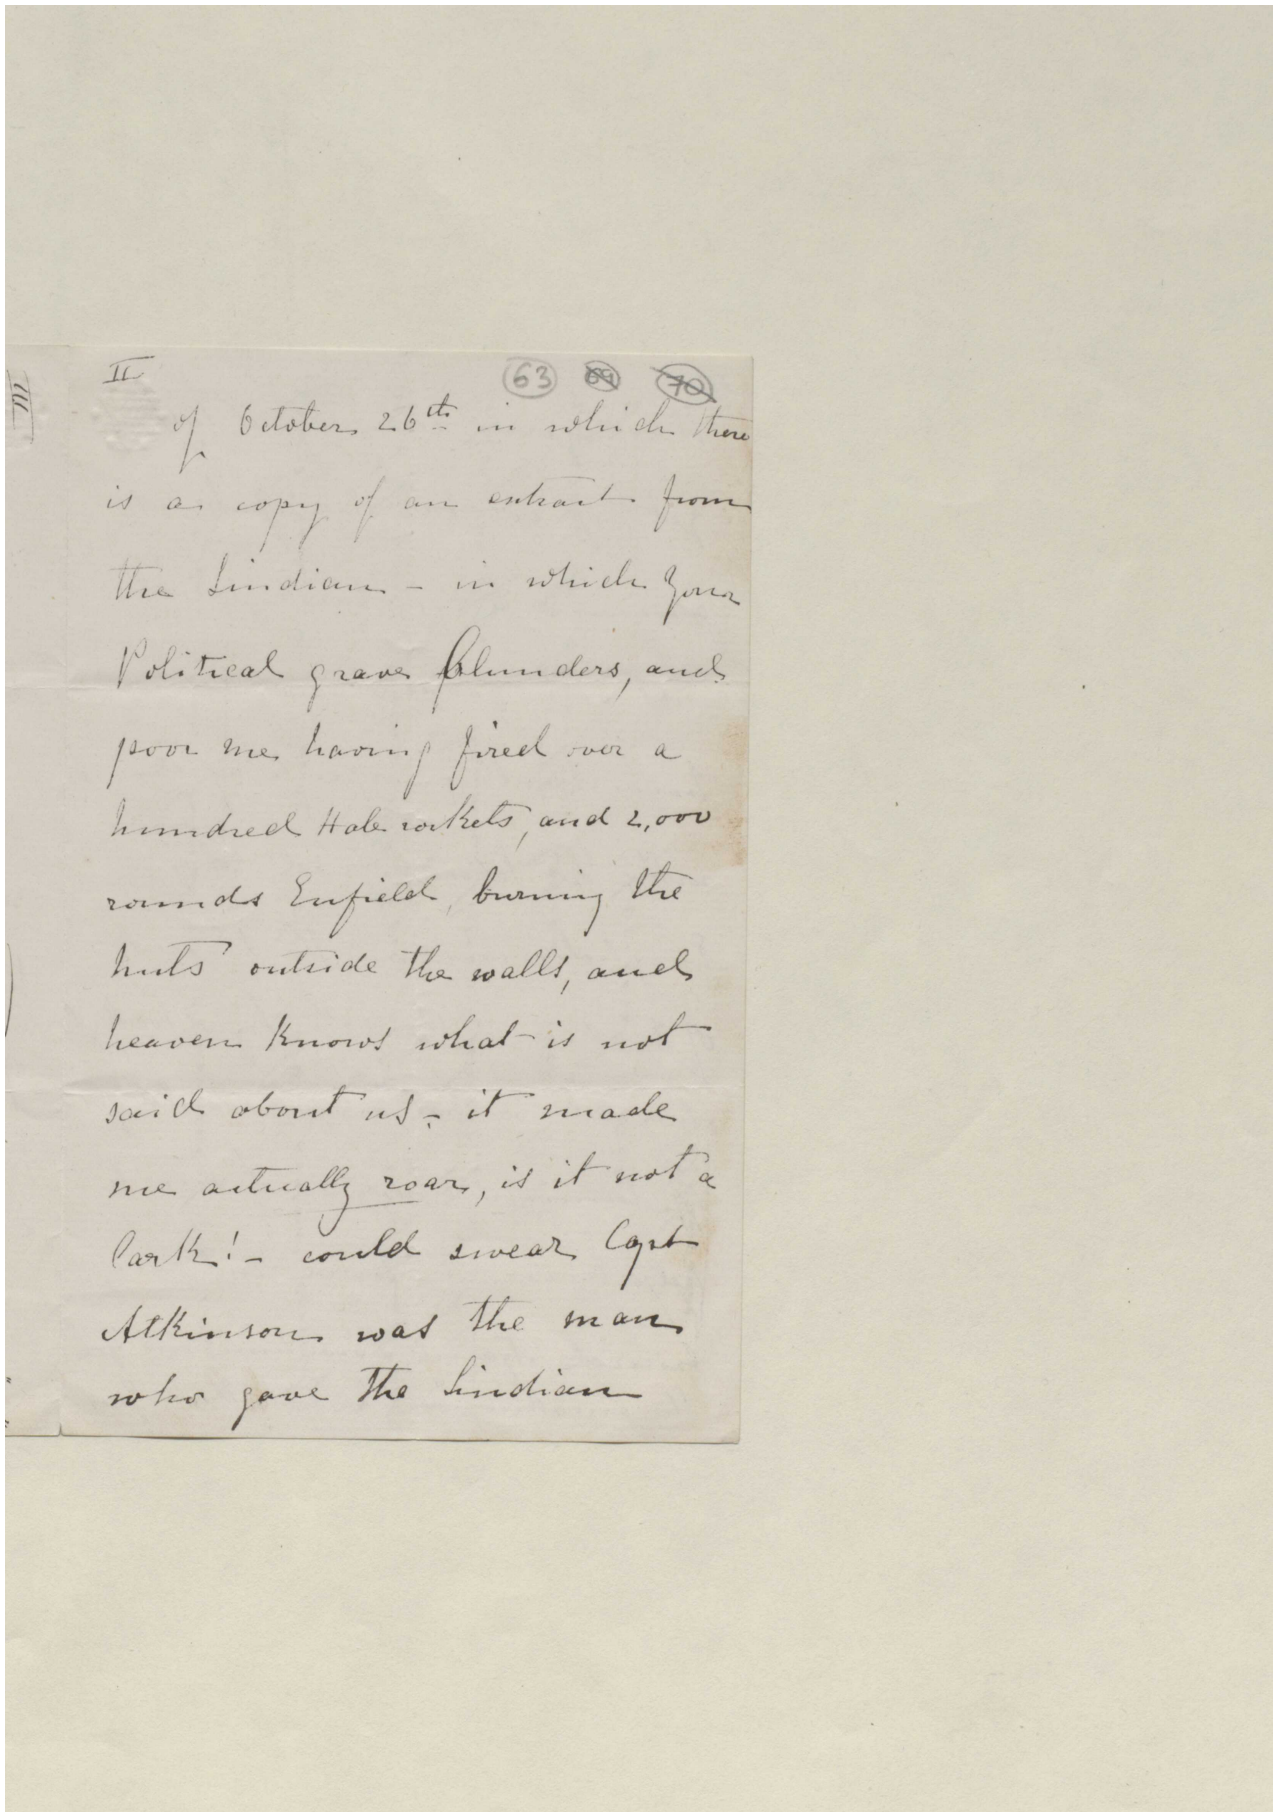 II
63 69 70
III
of October 26th in which there
is a copy of an extract from
the Sindian - in which your
Political grave blunders, and
poor me having fired over a
hundred Hale rockets, and 2,000
rounds Enfield, burning the
huts outside the walls, and
heaven knows what is not
said about us - it made
me actually roar, is it not a
lark! - could swear Capt
Atkinson was the man
who gave the Sindian